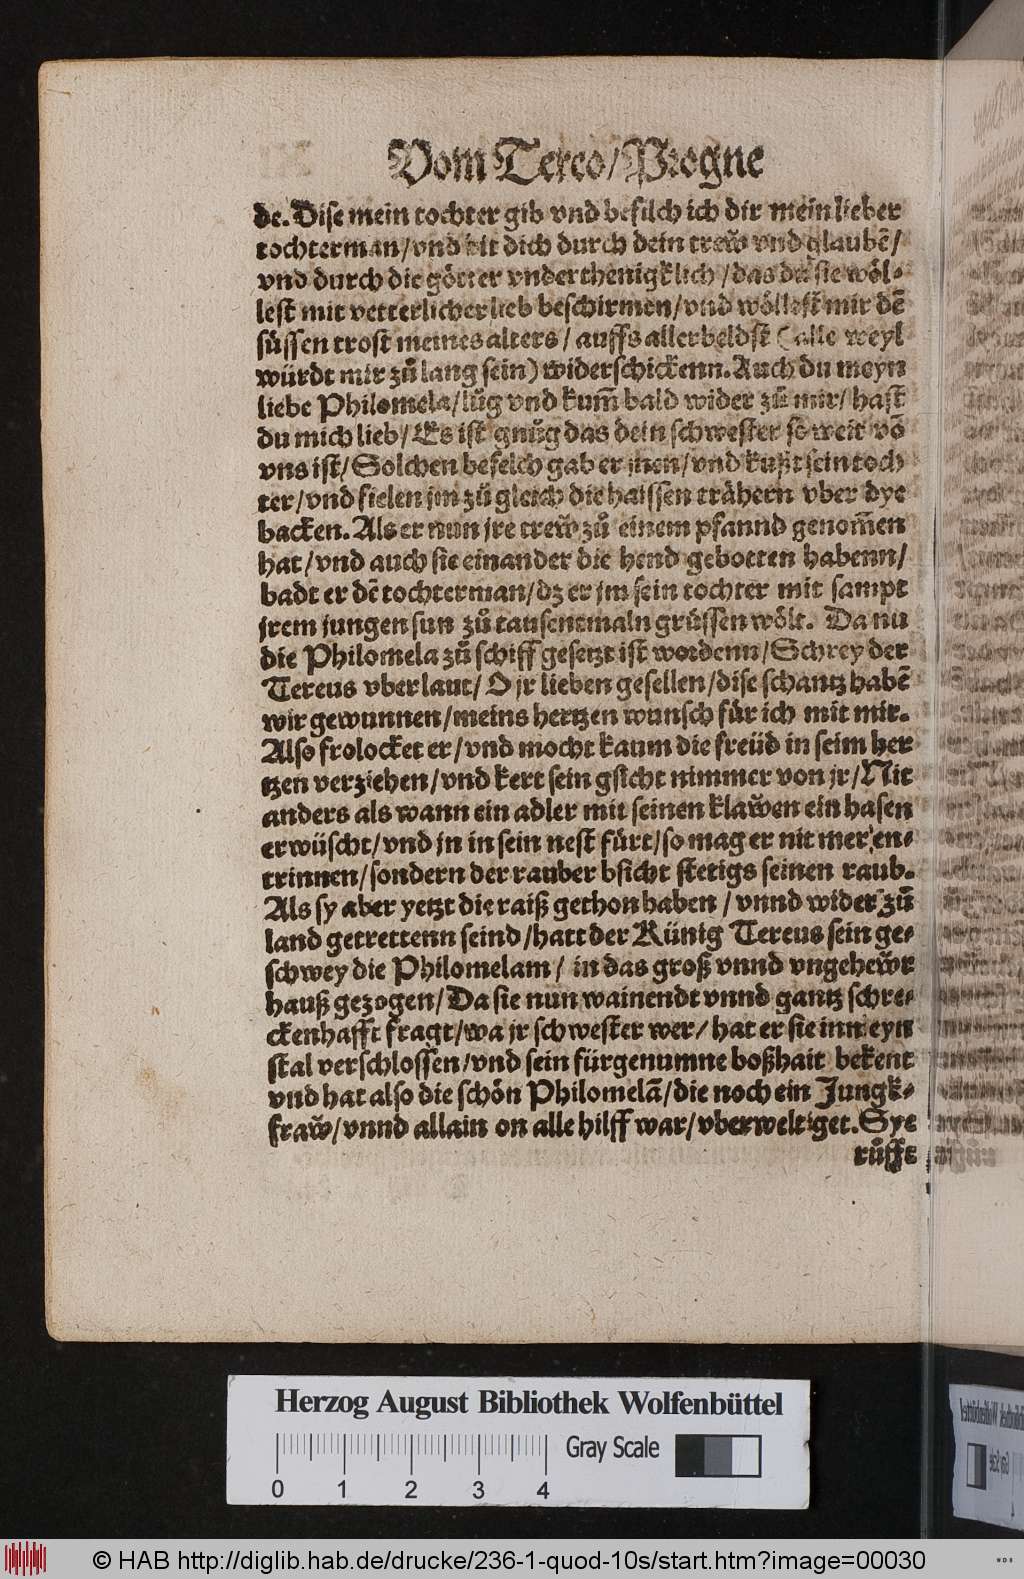 Vom Tereo/Progne
de. Dise mein tochter gib vnd befilch ich dir mein lieber
tochterman/vnd bit dich durch dein trew̃ vnd glaubẽ/
vnd durch die götter vnderthenigklich/das du sie wöl-
lest mit vetterlicher lieb beschirmen/vnd wöllest mir dẽ
süssen trost meines alters/ auffs allerbeldst (alle weyl
würdt mir zů lang sein) widerschickenn. Auch du meyn
liebe Philomela/lůg vnd kum̃ bald wider zů mir/ hast
du mich lieb/ Es ist gnůg das dein schwester so weit võ
vns ist/ Solchen befelch gab er jnen/vnd kußt sein toch
ter/vnd fielen jm zů gleich die haissen trähern vber dye
backen. Als er nun jre trew̃ zů einem pfannd genom̃en
hat/vnd auch sie einander die hend gebotten habenn/
badt er dẽ tochterman/dz er jm sein tochter mit sampt
jrem jungen sun zů tausentmaln grüssen wölt. Da nu
die Philomela zů schiff gesetzt ist wordenn/Schrey der
Tereus vber laut/ O jr lieben gesellen/dise schantz habẽ
wir gewunnen/meins hertzen wunsch für ich mit mir.
Also frolocket er/vnd mocht kaum die freüd in seim her
tzen verziehen/vnd kert sein gsicht nimmer von jr/Nit
anders als wann ein adler mit seinen klaw̃en ein hasen
erwüscht/vnd jn in sein nest fürt/so mag er nit mer en-
trinnen/sondern der rauber bsicht stetigs seinen raub.
Als sy aber yetzt die raiß gethon haben / vnnd wider zů
land getrettenn seind/hatt der Künig Tereus sein ge-
schwey die Philomelam/ in das groß vnnd vngehew̃r
hauß gezogen/ Da sie nun wainendt vnnd gantz schre-
ckenhafft fragt/wa jr schwester wer/ hat er sie inn eyn
stal verschlossen/vnd sein fürgenumne boßhait bekent
vnd hat also die schön Philomelã/die noch ein Jungk-
fraw̃/vnnd allain on alle hilff war/vberweltiget. Sye
růfft
Herzog August Bibliothek Wolfenbüttel
0 1 2 3 4 Gray Scale
© HAB http://diglib.hab.de/drucke/236-1-quod-10s/start.htm?image=00030